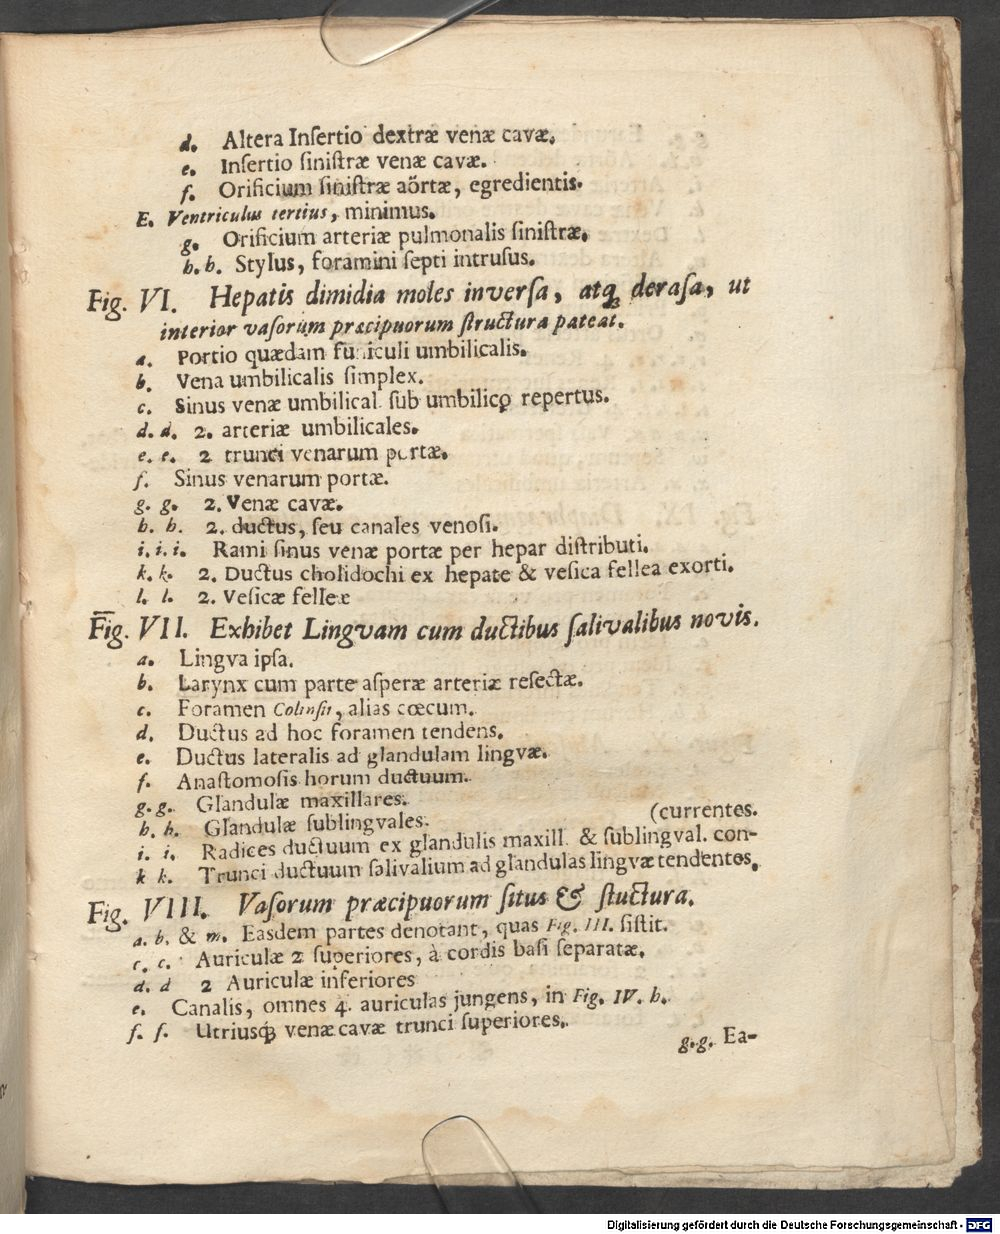 d. Altera Inſertio dextræ venæ cavæ.
e. Inſertio ſiniſtræ venæ cavæ.
f. Orificium ſiniſtræ aörtæ, egredientis.
E. Ventriculus tertius, minimus.
g. Orificium arteriæ pulmonalis ſiniſtræ.
h. h. Stylus, foramini ſepti intruſus.
Fig. VI. Hepatis dimidia moles inverſa, atq; deraſa, ut
interior vaſorum præcipuorum ſtructura pateat.
a. Portio quædam funiculi umbilicalis.
b. Vena umbilicalis ſimplex.
c. Sinus venæ umbilical. ſub umbilico repertus.
d. d. 2. arteriæ umbilicales.
e. e. 2 trunci venarum portæ.
f. Sinus venarum portæ.
g. g. 2. Venæ cavæ.
h. h. 2. ductus, ſeu canales venoſi.
i. i. i. Rami ſinus venæ portæ per hepar diſtributi.
k. k. 2. Ductus cholidochi ex hepate & veſica fellea exorti.
l. l. 2. Veſicæ felleæ
Fig. VII. Exhibet Lingvam cum ductibus ſalivalibus novis.
a. Lingva ipſa.
b. Larynx cum parte aſperæ arteriæ reſectæ.
c. Foramen , alias cœcum.
d. Ductus ad hoc foramen tendens.
e. Ductus lateralis ad glandulam lingvæ.
f. Anaſtomoſis horum ductuum.
g. g. Glandulæ maxillares.
h. h. Glandulæ ſublingvales. (currentes.
i. i. Radices ductuum ex glandulis maxill. & ſublingval. con-
k k. Trunci ductuum ſalivalium ad glandulas lingvæ tendentes.
Fig. VIII. Vaſorum præcipuorum ſitus & ſtuctura.
a. b. & m. Easdem partes denotant, quas Fig. III. ſiſtit.
c. c. Auriculæ 2 ſuperiores, à cordis baſi ſeparatæ.
d. d 2 Auriculæ inferiores
e. Canalis, omnes 4. auriculas jungens, in Fig. IV. h.
f. f. Utriusq; venæ cavæ trunci ſuperiores.
g. g. Ea-
Digitalisierung gefördert durch die Deutsche Forschungsgemeinschaft - DFG